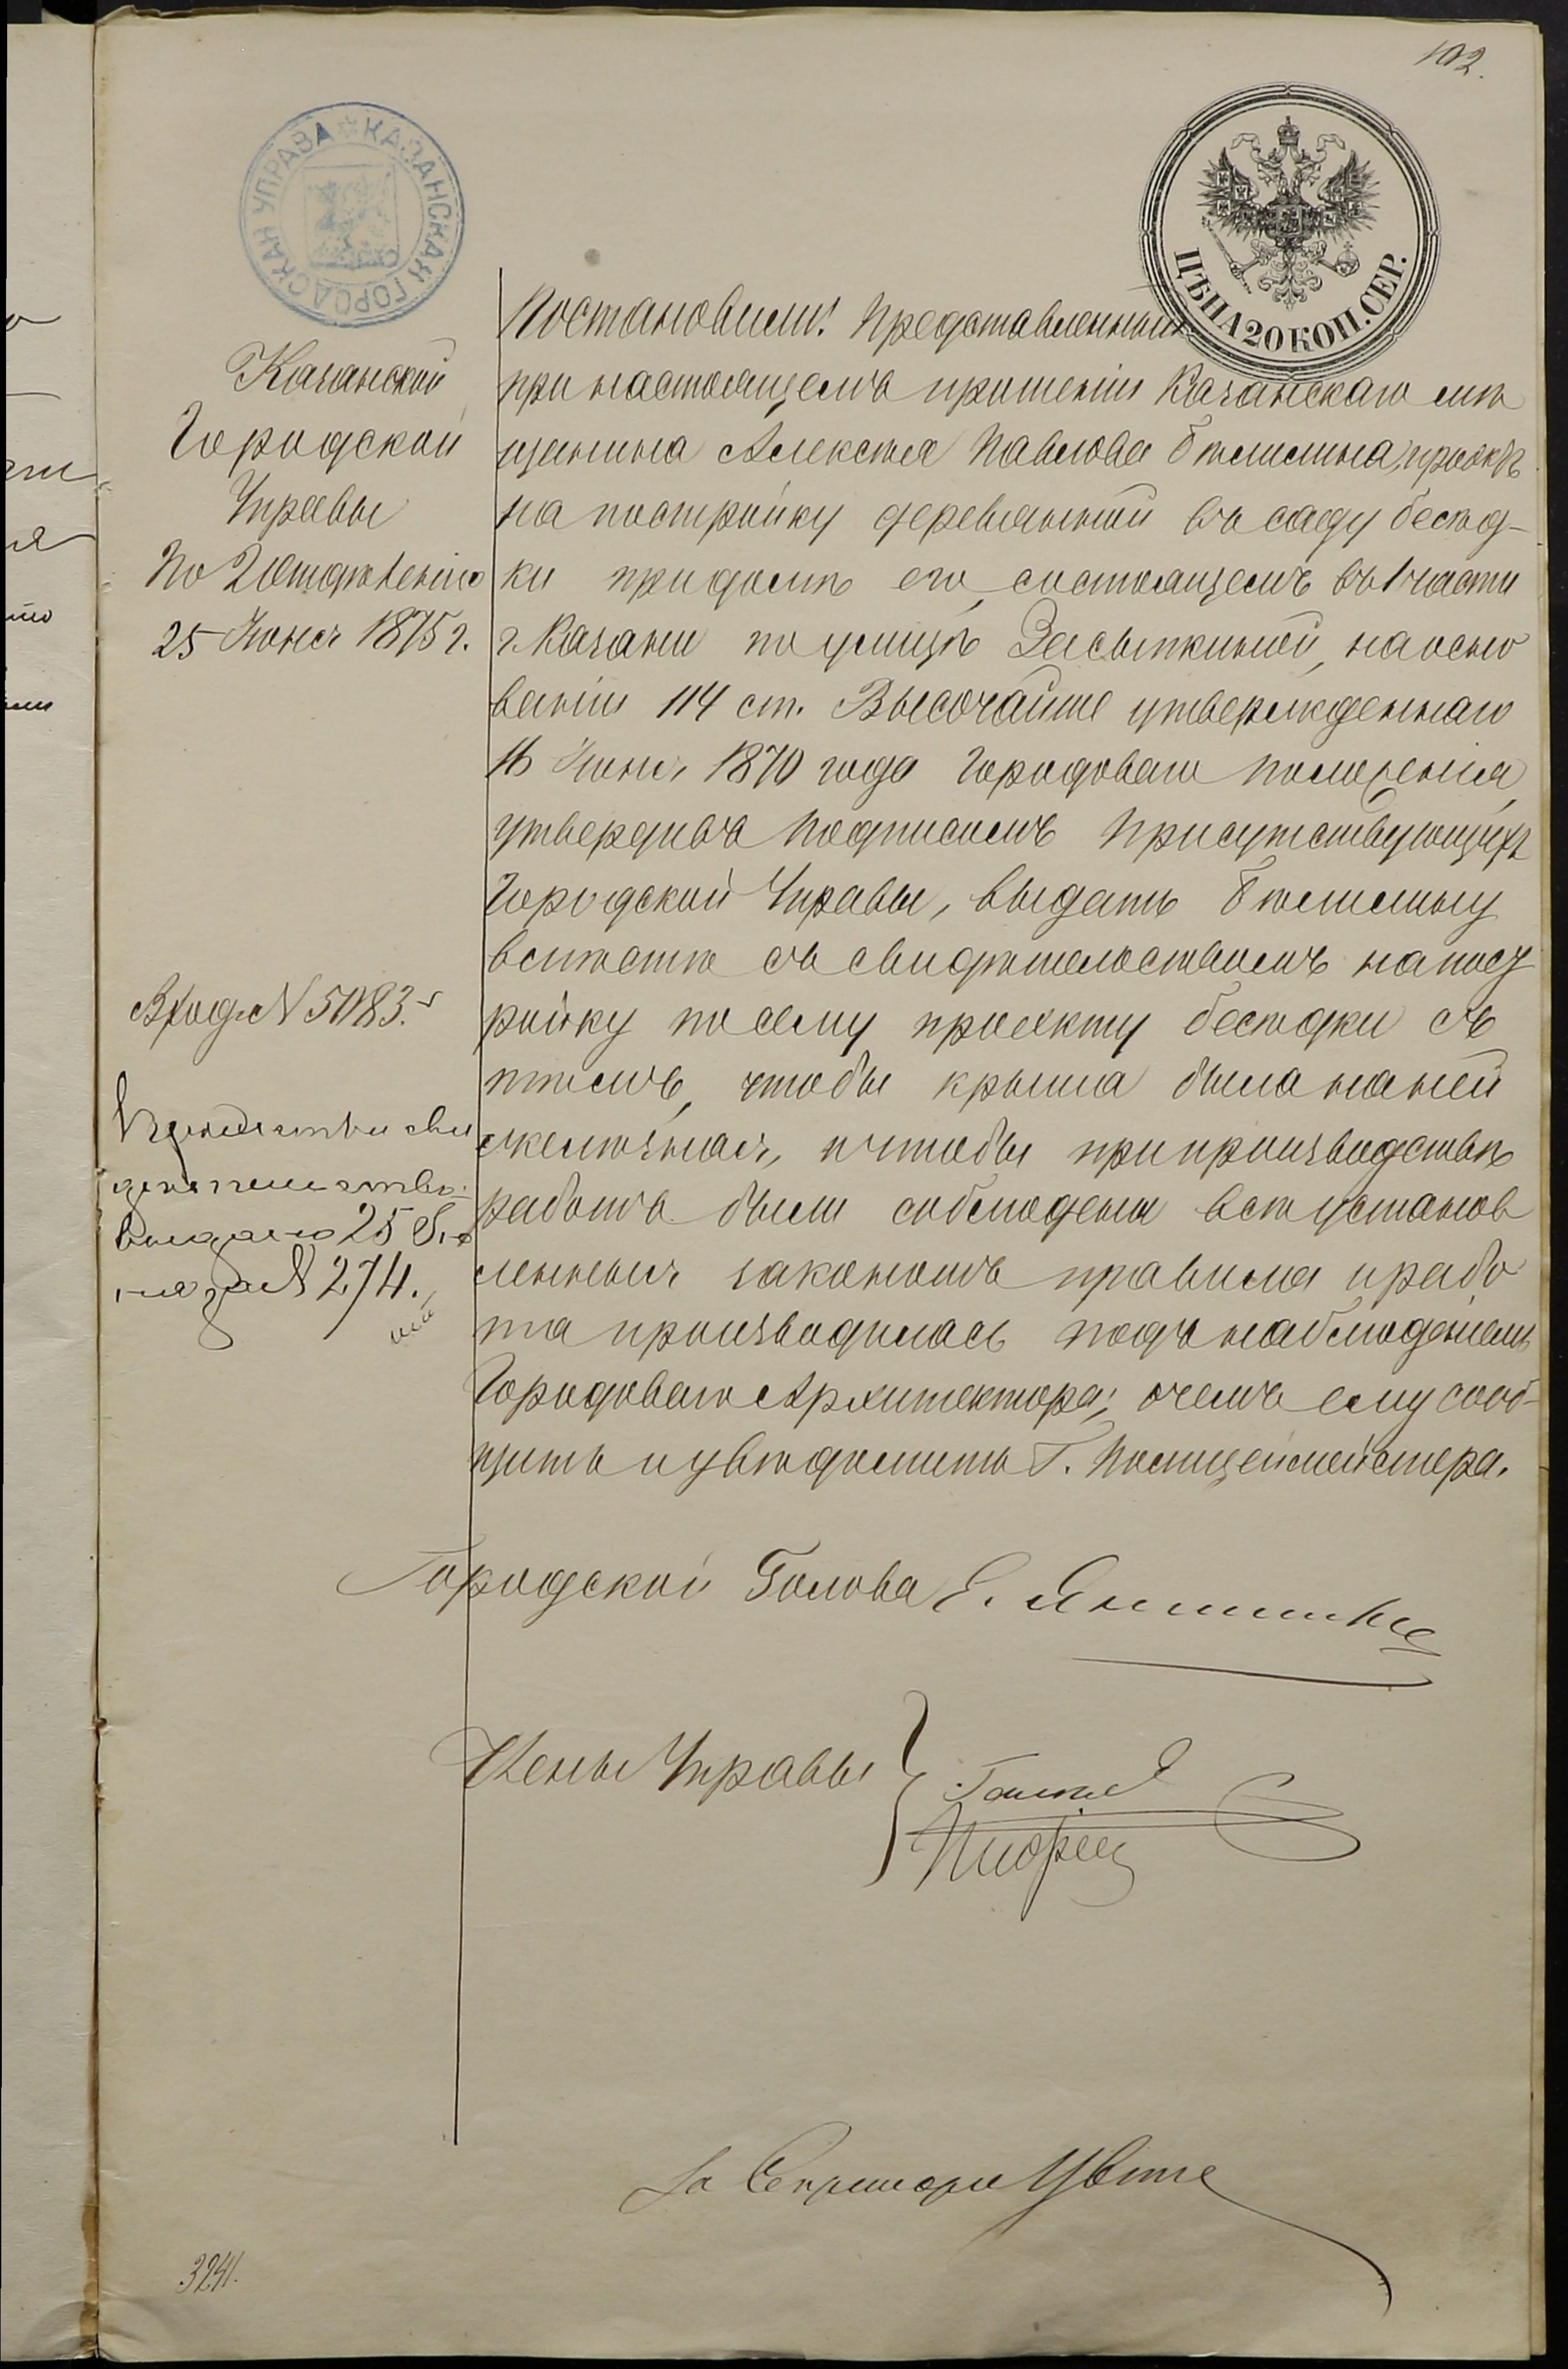 102.
КАЗАНСКАЯ ГОРОДСКАЯ УПРАВА
ЦѢНА 20 КОП. СЕР.
Казанской
Городской
Управы
По 2 Отдѣленію
25 Іюня 1875 г.
Постановили: Представленный
при настоящемъ прошеніи Казанскаго мѣ
щанина Алексѣя Павлова Бѣлилина, проэктъ
на постройку деревянной въ саду бесѣд-
ки при домѣ его, состоящемъ въ 1 части
г. Казани по улицѣ Засыпкиной, на осно
ваніи 114 ст. Высочайше утвержденнаго
16 Іюня 1870 года Городоваго положенія,
утвердивъ подписомъ Присутствующихъ
Городской Управы, выдать Бѣлилину
вмѣстѣ съ свидѣтельствомъ на пост
ройку по сему проэкту бесѣдки съ
тѣмъ, чтобы крыша была на ней
желѣзная, и чтобы при производствѣ
работъ были соблюдены всѣ установ
ленныя закономъ правила и рабо
та производилась подъ наблюденіемъ
Городоваго Архитектора; о чемъ ему сооб-
щить и увѣдомить Г. Полицеймейстера.
Вход. № 5083.
сви
дѣтельство
выдано 25
за № 274.
Городской Голова Е. Янишевскій
Члены Управы
За Секретаря
3241.